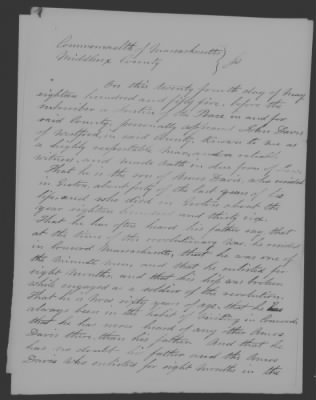 Commonwealth of Massachusetts } Ss
Middlesex County
On this twenty fourth day of May
eighteen hundred and fifty five, before the
subscriber a Justice of the Peace in and for
said County, personally appeared John Davis
of Westford, in said County, known to me as
a highly respectable man, and a reliable
witness, and made oath in due form of law
That he is the son of Amos Davis, who resided
in Groton, about fifty of the last years of his
life and who died in Groton about the
year eighteen hundred and thirty six.
That he has often heard his father say that
at the time of the revolutionary war he resided
in Concord Massachusetts, that he was one of
the minute men, and that he enlisted for
eight months, and that his hip was broken
while engaged as a soldier of the revolution.
That he is now sixty years of age, that he has
always been in the habit of in Concord,
that he has never heard of any other Amos
Davis there, than his father. And that he
has no doubt his father was the Amos
Davis who enlisted for eight months in the